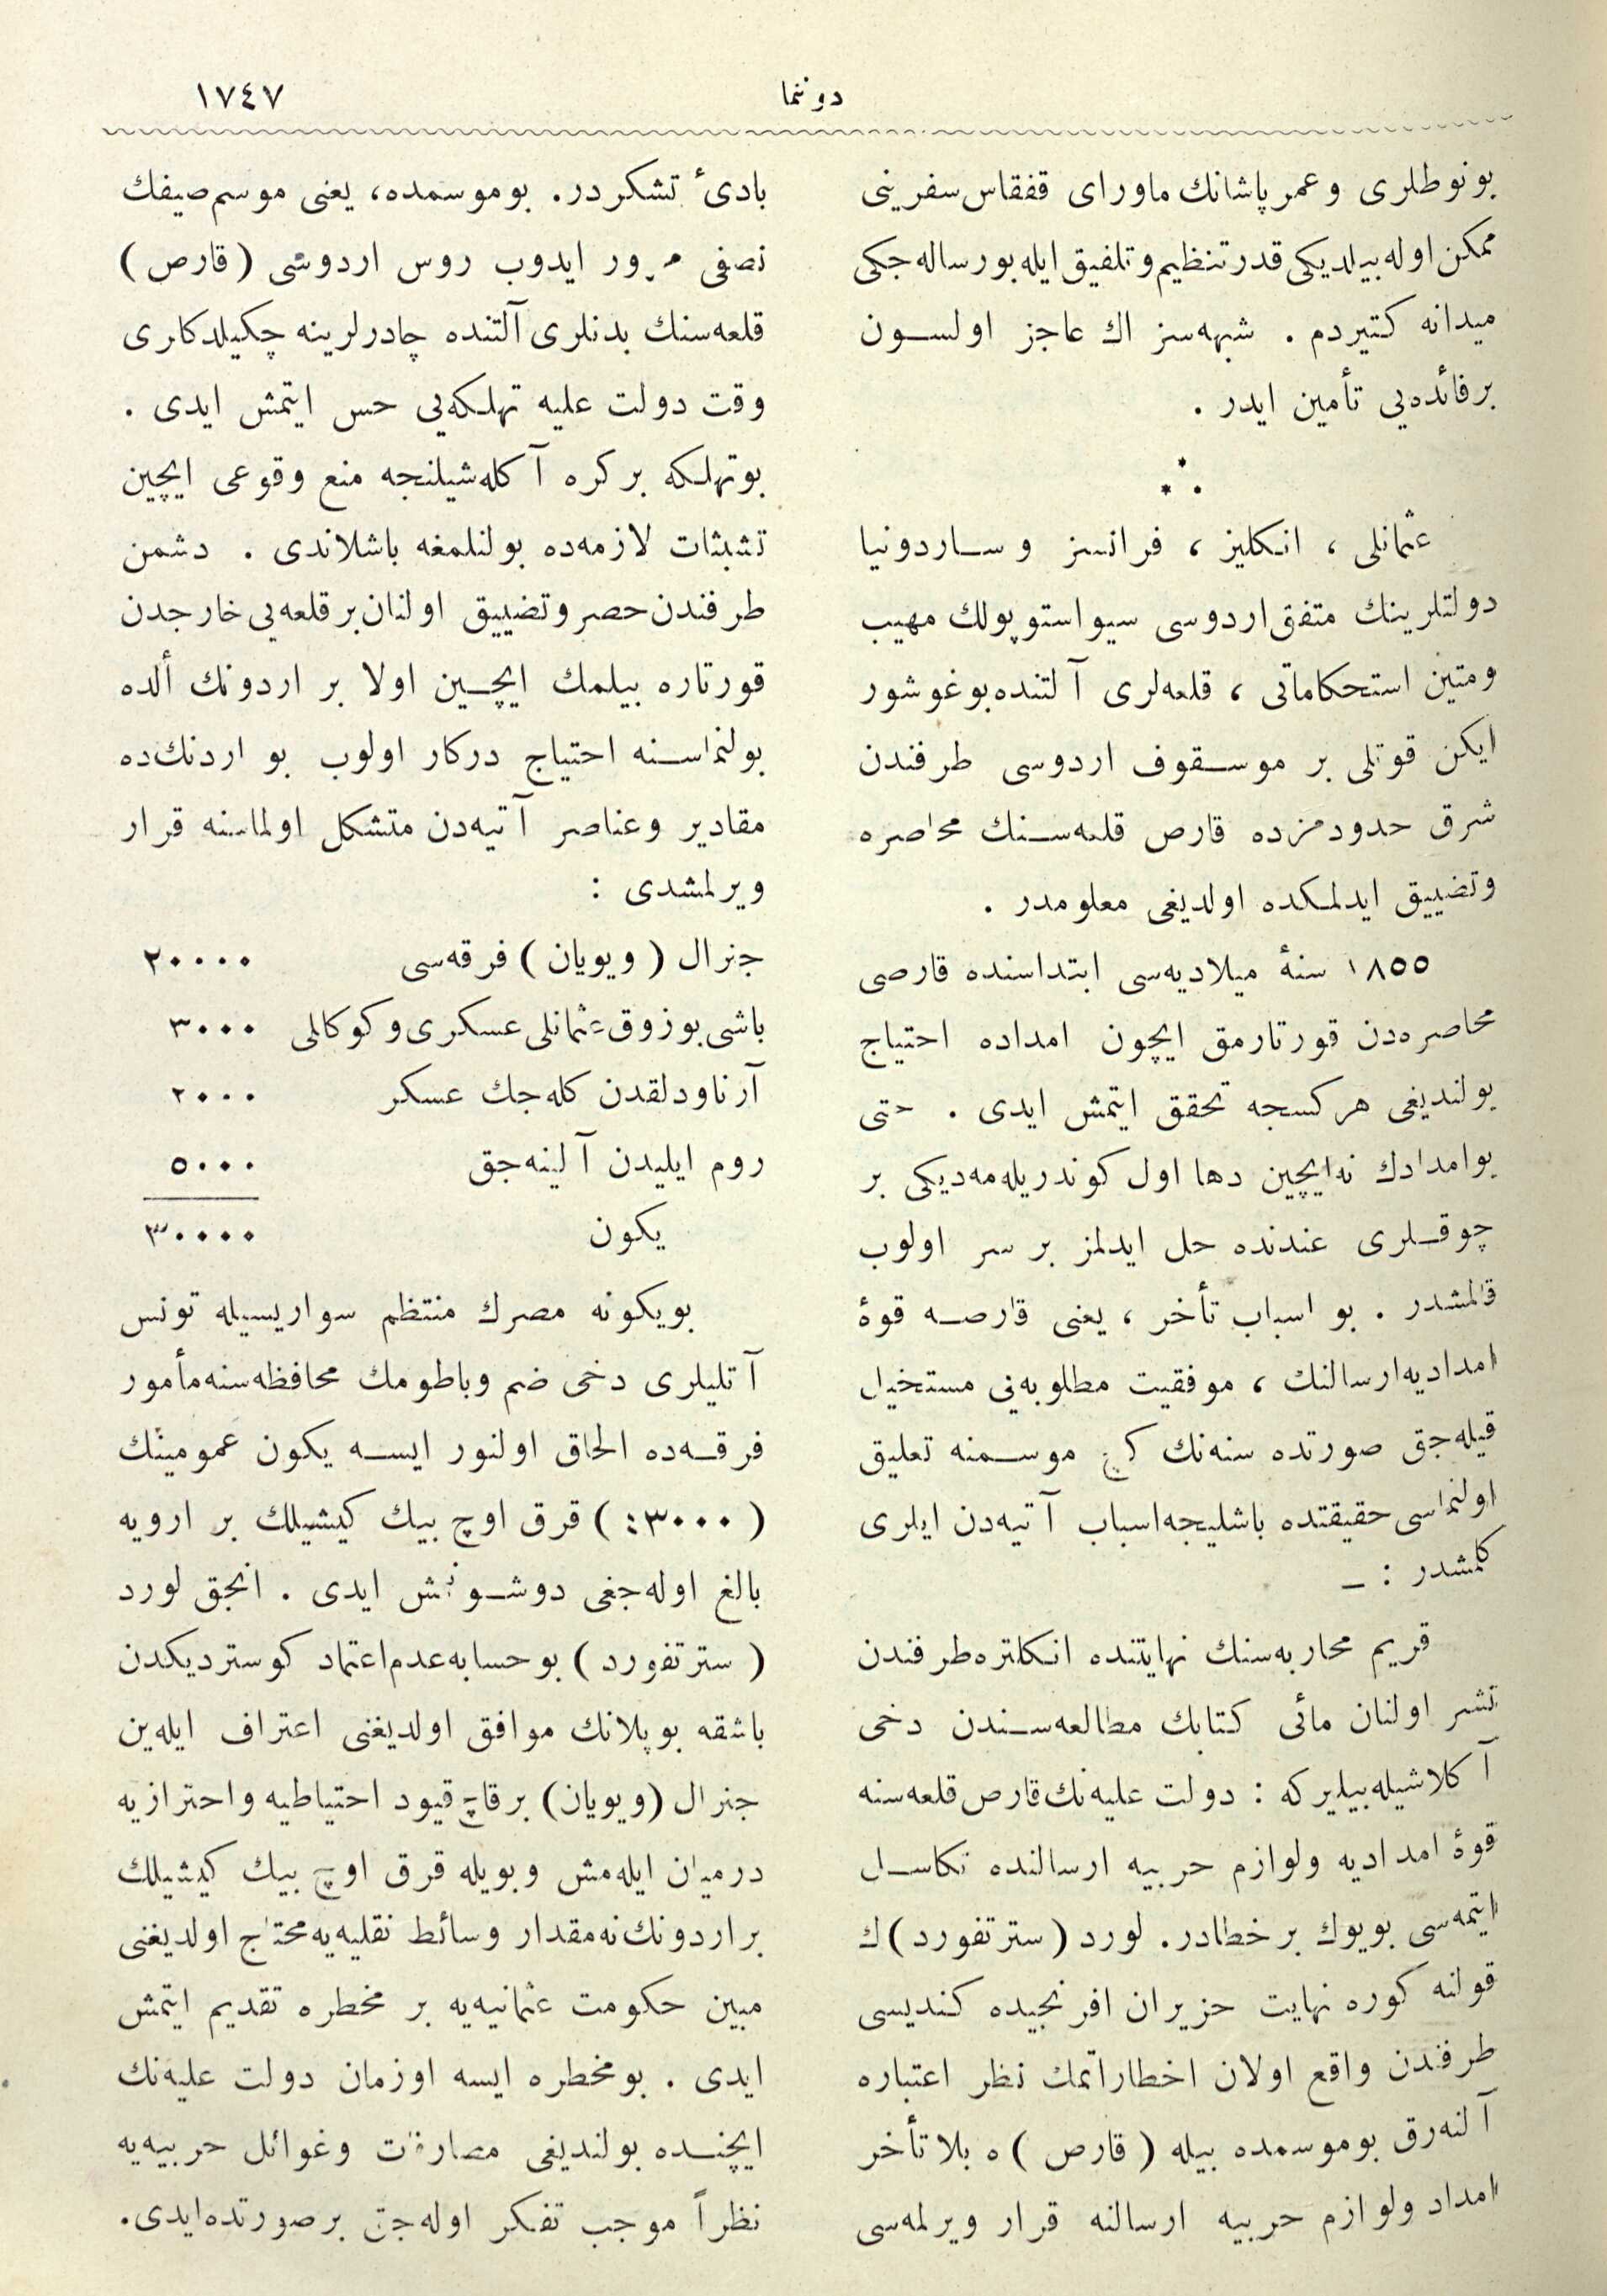 دوننما
١٧٤٧
بو نوطلری و عمر پاشانك ماورای قفقاس سفرینی
ممکن اوله بیلدیکی قدر تنظیم و تلفیق ایله بو رساله جکی
میدانه کتیردم . شبهه سز اك عاجز اولسون
بر فائده یی تأمین ایدر .
* * *
عثمانلی ، انکلیز ، فرانسز و ساردونیا
دولتلرینك متفق اردوسی سیواستوپولك مهیب
ومتین استحکاماتی ، قلعه لری آلتنده بوغوشور
ایکن قوتلی بر موسقوف اردوسی طرفندن
شرق حدودمزده قارص قلعه سنك محاصره
وتضییق ایدلمکده اولدیغی معلومدر .
١٨٥٥ سنۀ میلادیه سی ابتداسنده قارصی
محاصره دن قورتارمق ایچون امداده احتیاج
بولندیغی هر کسجه تحقق ایتمش ایدی . حتی
بو امدادك نه ایچین دها اول کوندریله مه دیکی بر
چوقلری عندنده حل ایدلمز بر سر اولوب
قالمشدر . بو اسباب تأخر ، یعنی قارصه قوۀ
امدادیه ارسالنك ، موفقیت مطلوبه نی مستخیل
قیله جق صورتده سنه نك کچ موسمنه تعلیق
اولنماسی حقیقتده باشلیجه اسباب آتیه دن ایلری
کلمشدر : ــ
قریم محاربه سنك نهایتنده انکلتره طرفندن
نشر اولنان مائی کتابك مطالعه سندن دخی
آکلاشیله بیلیرکه : دولت علیه نك قارص قلعه سنه
قوۀ امدادیه ولوازم حربیه ارسالنده تکاسل
ایتمه سی بویوك بر خطادر. لورد ( سترتفورد )ك
قولنه کوره نهایت حزیران افرنجیده کندیسی
طرفندن واقع اولان اخطاراتمك نظر اعتباره
آلنه رق بو موسمده بیله ( قارص )ه بلا تأخر
امداد ولوازم حربیه ارسالنه قرار ویرلمه سی
بادیٔ تشکردر. بو موسمده، یعنی موسم صیفك
نصفی مرور ایدوب روس اردوسی ( قارص )
قلعه سنك بدنلری آلتنده چادرلرینه چکیلدکلری
وقت دولت علیه تهلکه یی حس ایتمش ایدی .
بو تهلکه بر کره آکله شیلنجه منع وقوعی ایچین
تشبثات لازمه ده بولنلمغه باشلاندی . دشمن
طرفندن حصر وتضییق اولنان بر قلعه یی خارجدن
قورتاره بیلمك ایچین اولا بر اردونك ألده
بولنماسنه احتیاج درکار اولوب بو اردنك ده
مقادیر وعناصر آتیه دن متشکل اولماسنه قرار
ویرلمشدی :
جنرال ( ویویان ) فرقه سی ٢٠٠٠٠
باشی بوزوق عثمانلی عسکری و کوکللی ٣٠٠٠
آرناودلقدن کله جك عسکر ٢٠٠٠
روم ایلیدن آلینه جق ٥٠٠٠
یکون ٣٠٠٠٠
بو یکونه مصرك منتظم سواریسیله تونس
آتلیلری دخی ضم وباطومك محافظه سنه مأمور
فرقه ده الحاق اولنور ایسه یکون عمومینك
( ٤٣٠٠٠ ) قرق اوچ بیك کیشیلك بر ارویه
بالغ اوله جغی دوشونلمش ایدی . انجق لورد
( سترتفورد ) بو حسابه عدم اعتماد کوستردیکدن
باشقه بو پلانك موافق اولدیغنی اعتراف ایله ین
جنرال (ویویان) بر قاچ قیود احتیاطیه واحترازیه
درمیان ایله مش وبویله قرق اوچ بیك کیشیلك
بر اردونك نه مقدار وسائط نقلیه یه محتاج اولدیغنی
مبین حکومت عثمانیه یه بر مخطره تقدیم ایتمش
ایدی . بو مخطره ایسه اوزمان دولت علیه نك
ایچنده بولندیغی مصارفات وغوائل حربیه یه
نظراً موجب تفکر اوله جق بر صورتده ایدی.